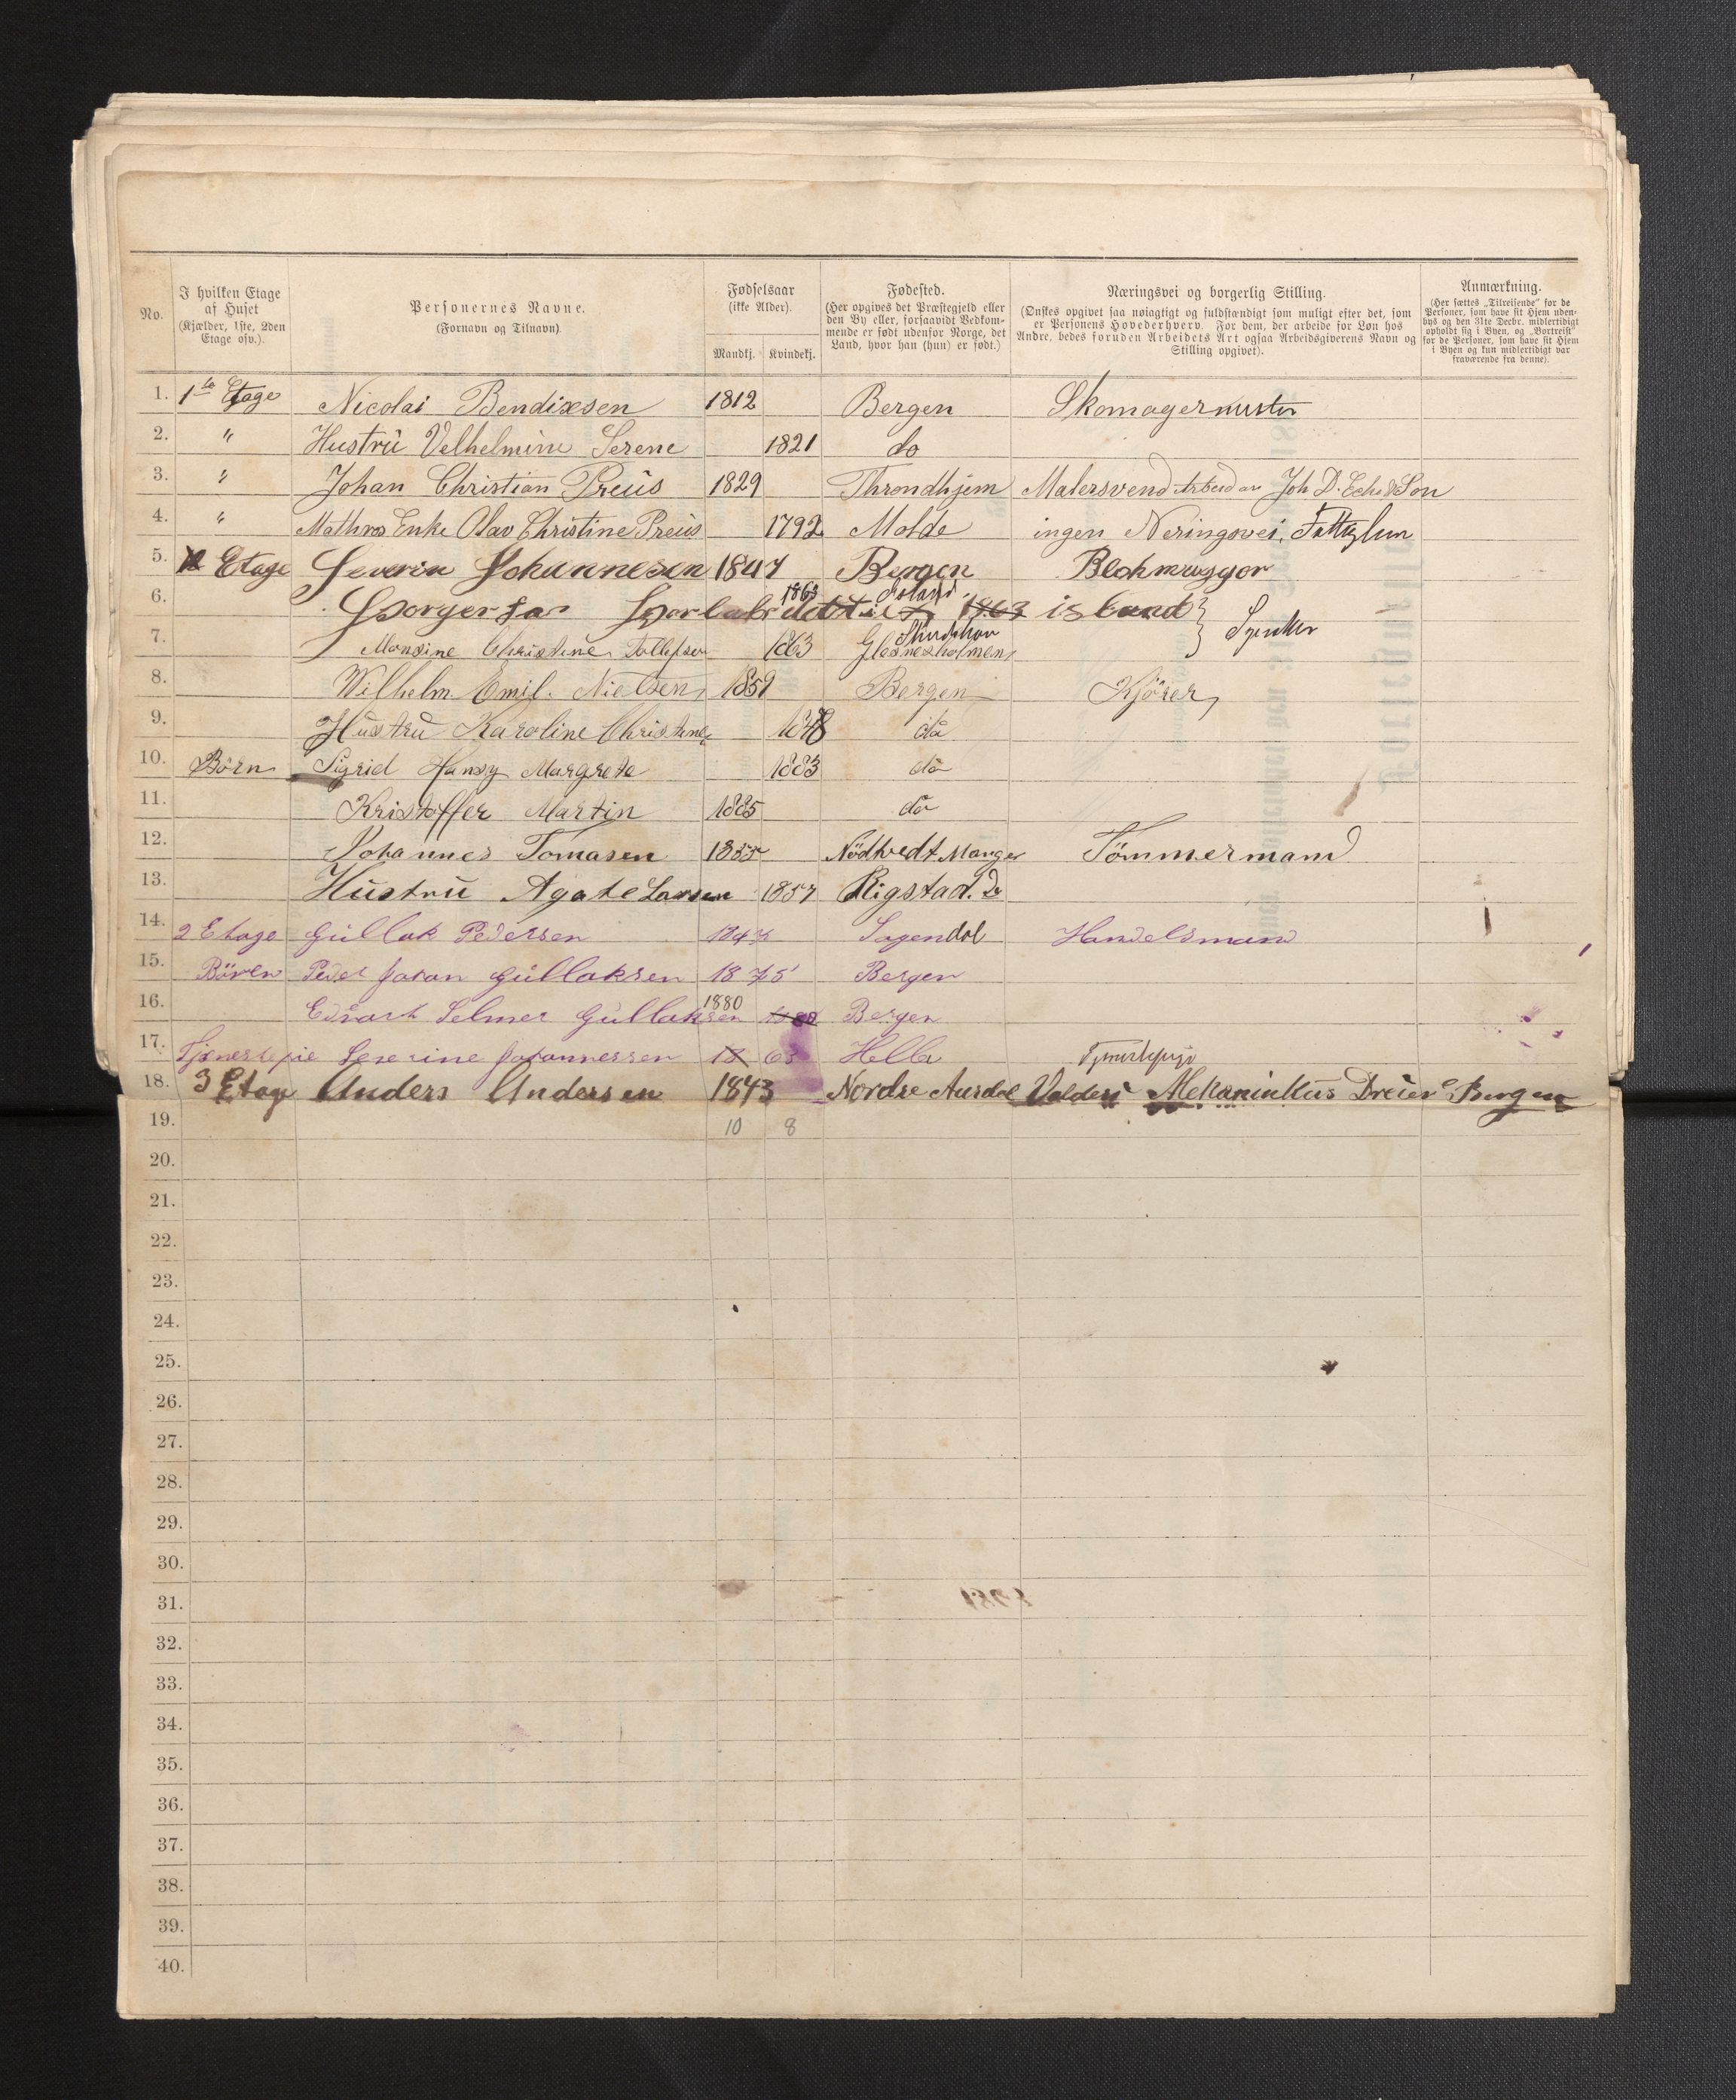 No.
I hvilken Etage af Huset (Kjælder, 1ste, 2den Etage osv.).
Personernes Navne. (Fornavn og Tilnavn).
Fødselsaar (ikke Alder). Mandkj. Kvindekj.
Fødested. (Her opgives det Præstegjeld eller den By eller, forsaavidt Vedkommende er født udenfor Norge, det Land, hvor han (hun) er født.)
Næringsvei og borgerlig Stilling. (Ønskes opgivet saa nøiagtigt og fuldstændigt som muligt efter det, som er Personens Hovederhverv. For dem, der arbeide for Løn hos Andre, bedes foruden Arbeidets Art ogsaa Arbeidsgiverens Navn og Stilling opgivet).
Anmærkning. (Her sættes „Tilreisende" for de Personer, som have sit Hjem udenbys og den 31te Decbr. midlertidigt opholdt sig i Byen, og „Bortreist" for de Personer, som have sit Hjem i Byen og kun midlertidigt var fraværende fra denne).
1. 1ste Etage Nicolai Bendixsen 1812 Bergen Skomagermester
2. " Hustrü Velhelmine Serene 1821 do
3. " Johan Christian Preüs 1829 Throndhjem Malersvend Joh D. & Son
4. " Enke Olav Christine Preüs 1792 Molde ingen Neringsvei,
5. Etage Severin Johannesen 1847 Bergen
6. 1863 1863 island
7. Monsine Christine Tollefsen 1863
8. Wilhelm Emil Nielsen 1859 Bergen Kjører
9. Hüstrü Karoline Christine 1848 do
10. Børn Sigrid Hansy Margrete 1883 do
11. Kristoffer Martin 1885 do
12. Johannes Tomasen 1855 Nödtvedt Manger Tömmermand
13. Hüstrü Agate Larsen 1857 Rigstad. Do
14. 2 Etage Güllak Pedersen Sogendal Handelsmand
15. Börn Peder Johan Güllaksen 1875 Bergen
16. 1880 Edvart Selmer Güllaksen 1880 Bergen
17. Severine Johannessen 18 63 Hella
18. 3 Etage Anders Andersen 1843 Nordre Aurdal Valders Mekanikkus Dreier Bergen
19. 10 8
20.
21.
22.
23.
24.
25.
26.
27.
28.
29.
30.
31.
32.
33.
34.
35.
36.
37.
38.
39.
40.